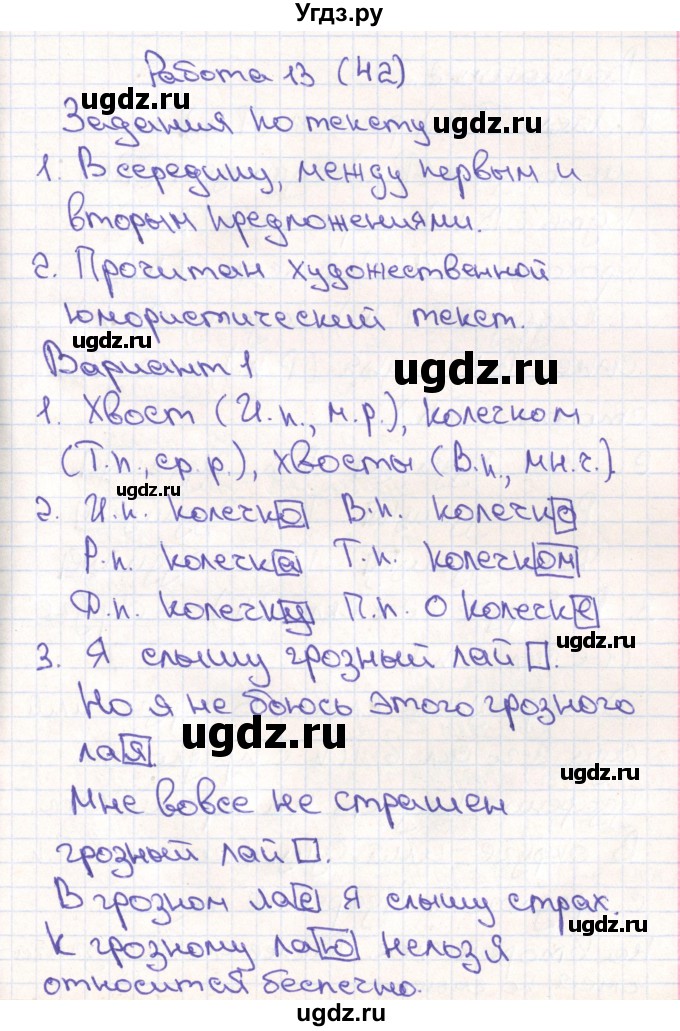 Угдз.ру
Работа 13 (42)
ugdz.ru
Задания по тексту
ugdz.ru
1. В середину, между первым и
вторым предложениями.
ugdz.ru
2. Прочитан художественной
юмористический текст.
ugdz.ru
Вариант 1
ugdz.ru
1. Хвост (И.п., м.р.), колечком
(Т.п., ср.р.), хвосты (В.п., мн.ч.).
ugdz.ru
2. И.п. колечко В.п. колечко
Р.п. колечка Т.п. колечком
Д.п. колечку П.п. о колечке
ugdz.ru
3. Я слышу грозный лай.
Но я не боюсь этого грозного
ugdz.ru
лая.
ugdz.ru
Мне вовсе не страшен
грозный лай.
ugdz.ru
В грозном лае я слышу страх.
ugdz.ru
К грозному лаю нельзя
относится беспечно.
ugdz.ru